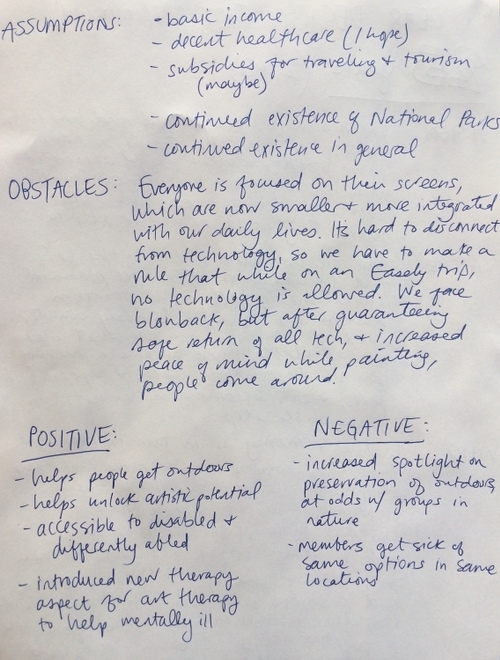 ASSUMPTIONS:
- basic income
- decent healthcare (I hope)
- subsidies for traveling & tourism
(maybe)
- continued existence of National Parks
- continued existence in general
OBSTACLES:
Everyone is focused on their screens,
which are now smaller & more integrated
with our daily lives. It's hard to disconnect
from technology, so we have to make a
rule that while on an Easely trip,
no technology is allowed. We face
blowback, but after guaranteeing
safe return of all tech, & increased
peace of mind while painting,
people come around.
POSITIVE:
- helps people get outdoors
- helps unlock artistic potential
- accessible to disabled &
differently abled
- introduced new therapy
aspect for art therapy
to help mentally ill
NEGATIVE:
- increased spotlight on
preservation of outdoors,
at odds w/ groups in
nature
- members get sick of
same options in same
locations